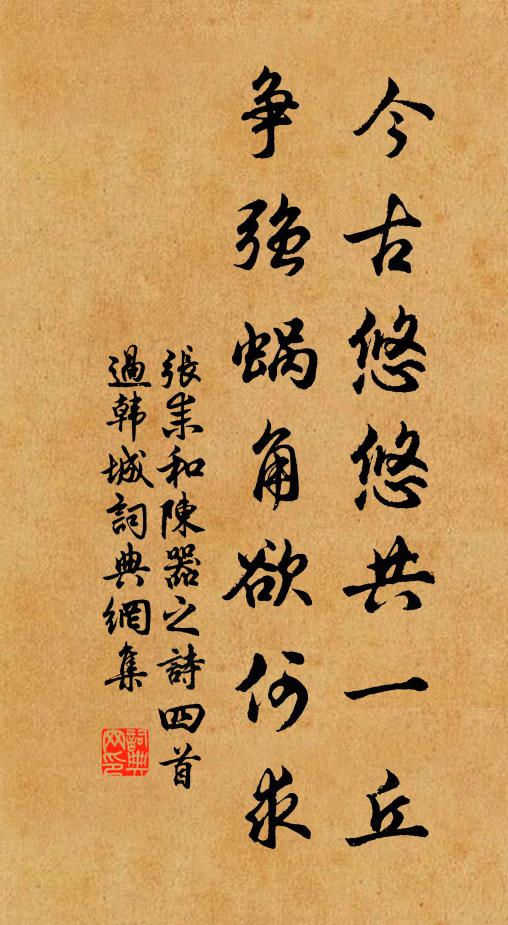 今古悠悠共一丘
争強蝸角欲何求
張耒和陳器之詩四首
過韩城詞典網集
詞典网印